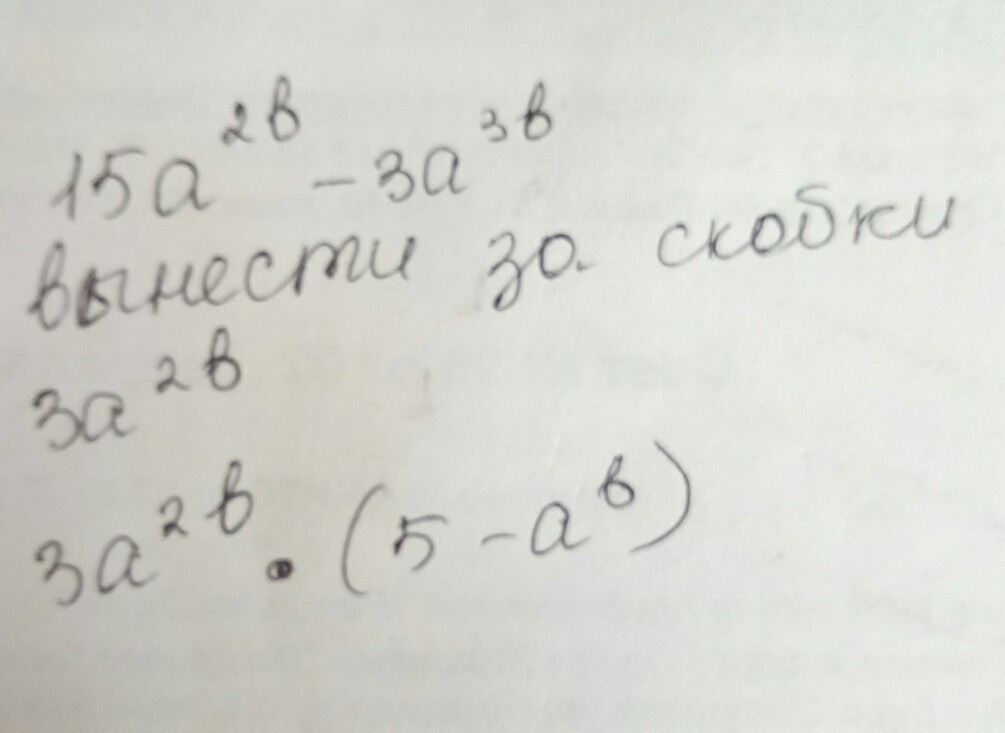 15a^{2b} - 3a^{3b}
вынести за скобки
3a^{2b}
3a^{2b} · (5 - a^{b})